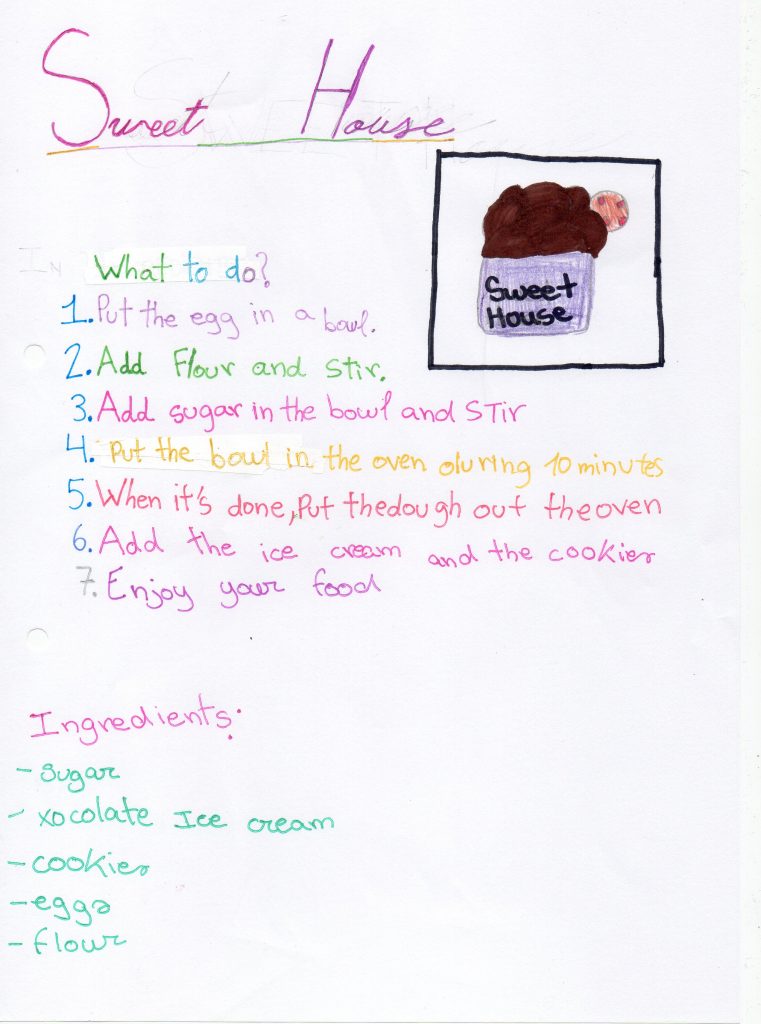 Sweet House
Sweet
House
What to do?
1. Put the egg in a bowl.
2. Add Flour and stir.
3. Add sugar in the bowl and STir
4. Put the bowl in the oven during 10 minutes
5. When it's done, Put the dough out the oven
6. Add the ice cream and the cookies
7. Enjoy your food
Ingredients:
- sugar
- xocolate Ice cream
- cookies
- eggs
- flour